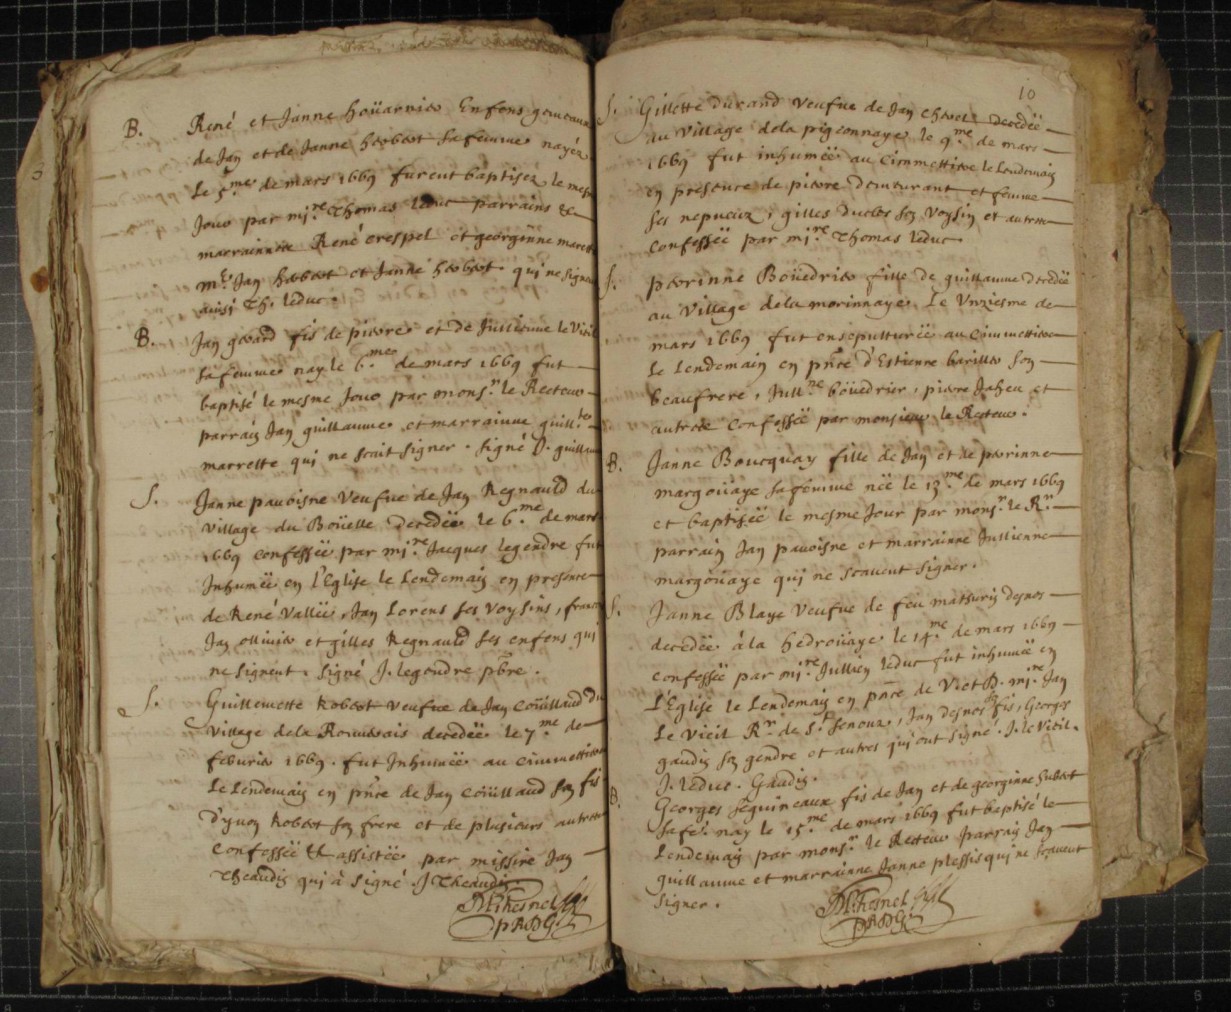 B. René et Janne hoüarniere Enfens gemeaux
de Jan et de Janne herbert sa femme nayéz
Le 5.me de mars 1669 furent baptisez le mesme
Jour par mi.re Thomas leduc parrains &
marrainnes René crespel et georginne marette
m.e Jan herbert et Janne herbert qui ne signent
ainsi Th. leduc.
B. Jan gerard fis de pierre et de Jullienne le Vieil
sa femme nay le 6.me de mars 1669 fut
baptisé le mesme Jour par mons.r le Recteur
parrain Jan guillaume et marrainne guill.te
marrette qui ne scait signer. signé J. guillaume
S. Janne pauoisne Veufue de Jan Regnauld du
Village du Boüelle decedée le 6.me de mars
1669 confessée par mi.re Jacques legendre fut
Inhumée en l'Eglise le Lendemain en presence
de René Vallée, Jan Lorens ses Voysins, francois
Jan olliuier et gilles Regnauld ses enfens qui
ne signent. signé J. legendre pbre.
S. Guillemette Robert Veufue de Jan Coüillaud du
Village dela decedée le 7.me de
feburier 1669. fut Inhumée au Cimmettiere
Le Lendemain en pnce de Jan Coüillaud son fis
D'yuon Robert son frere et de plusieurs autres
Confessée & assistée par missire Jan
Theaudin qui à signé. J Theaudin
10
S. Gillette durand Veufue de Jan decedée
au Village dela pigeonnaye le 9.me de mars
1669 fut inhumée au Cimmettiere le Lendemain
en présence de pierre demeurant et femme
ses nepueux, gilles duclos son Voysin et autres
Confessée par mi.re Thomas leduc
S. perrinne Boüedriere fille de guillaume decedée
au Village dela morinnaye Le Vnziesme de
mars 1669 fut ensepulturée au Cimmettiere
Le Lendemain en pnce d'Estienne barillier son
beaufrere, Jull.ne boüedrier, pierre Daheu et
autres Confessée par monsieur le Recteur.
B. Janne Boucquay fille de Jan et de perrinne
margoüaye sa femme née le 13.me de mars 1669
et baptisée le mesme Jour par mons.r le R.r
parrain Jan pauoisne et marrainne Jullienne
margoüaye qui ne scauent signer.
S. Janne Blaye Veufue de feu mathurin desnos
decedée à la hedroüaye le 14.me de mars 1669
confessée par mi.re Jullien leduc fut inhumée en
L'Eglise le Lendemain en pnce de Ven.t D. mi.re Jan
Le Vieil R.r de S.t Senoux, Jan desnos son fis, Georges
gaudin son gendre et autres qui ont signé. J. le Vieil.
J. leduc. Gaudin.
B. Georges seguineaux fis de Jan et de georginne hubert
sa fe. nay le 15.me de mars 1669 fut baptisé le
Lendemain par mons.r le Recteur parrain Jan
guillaume et marrainne Janne plessis qui ne scauent
signer.